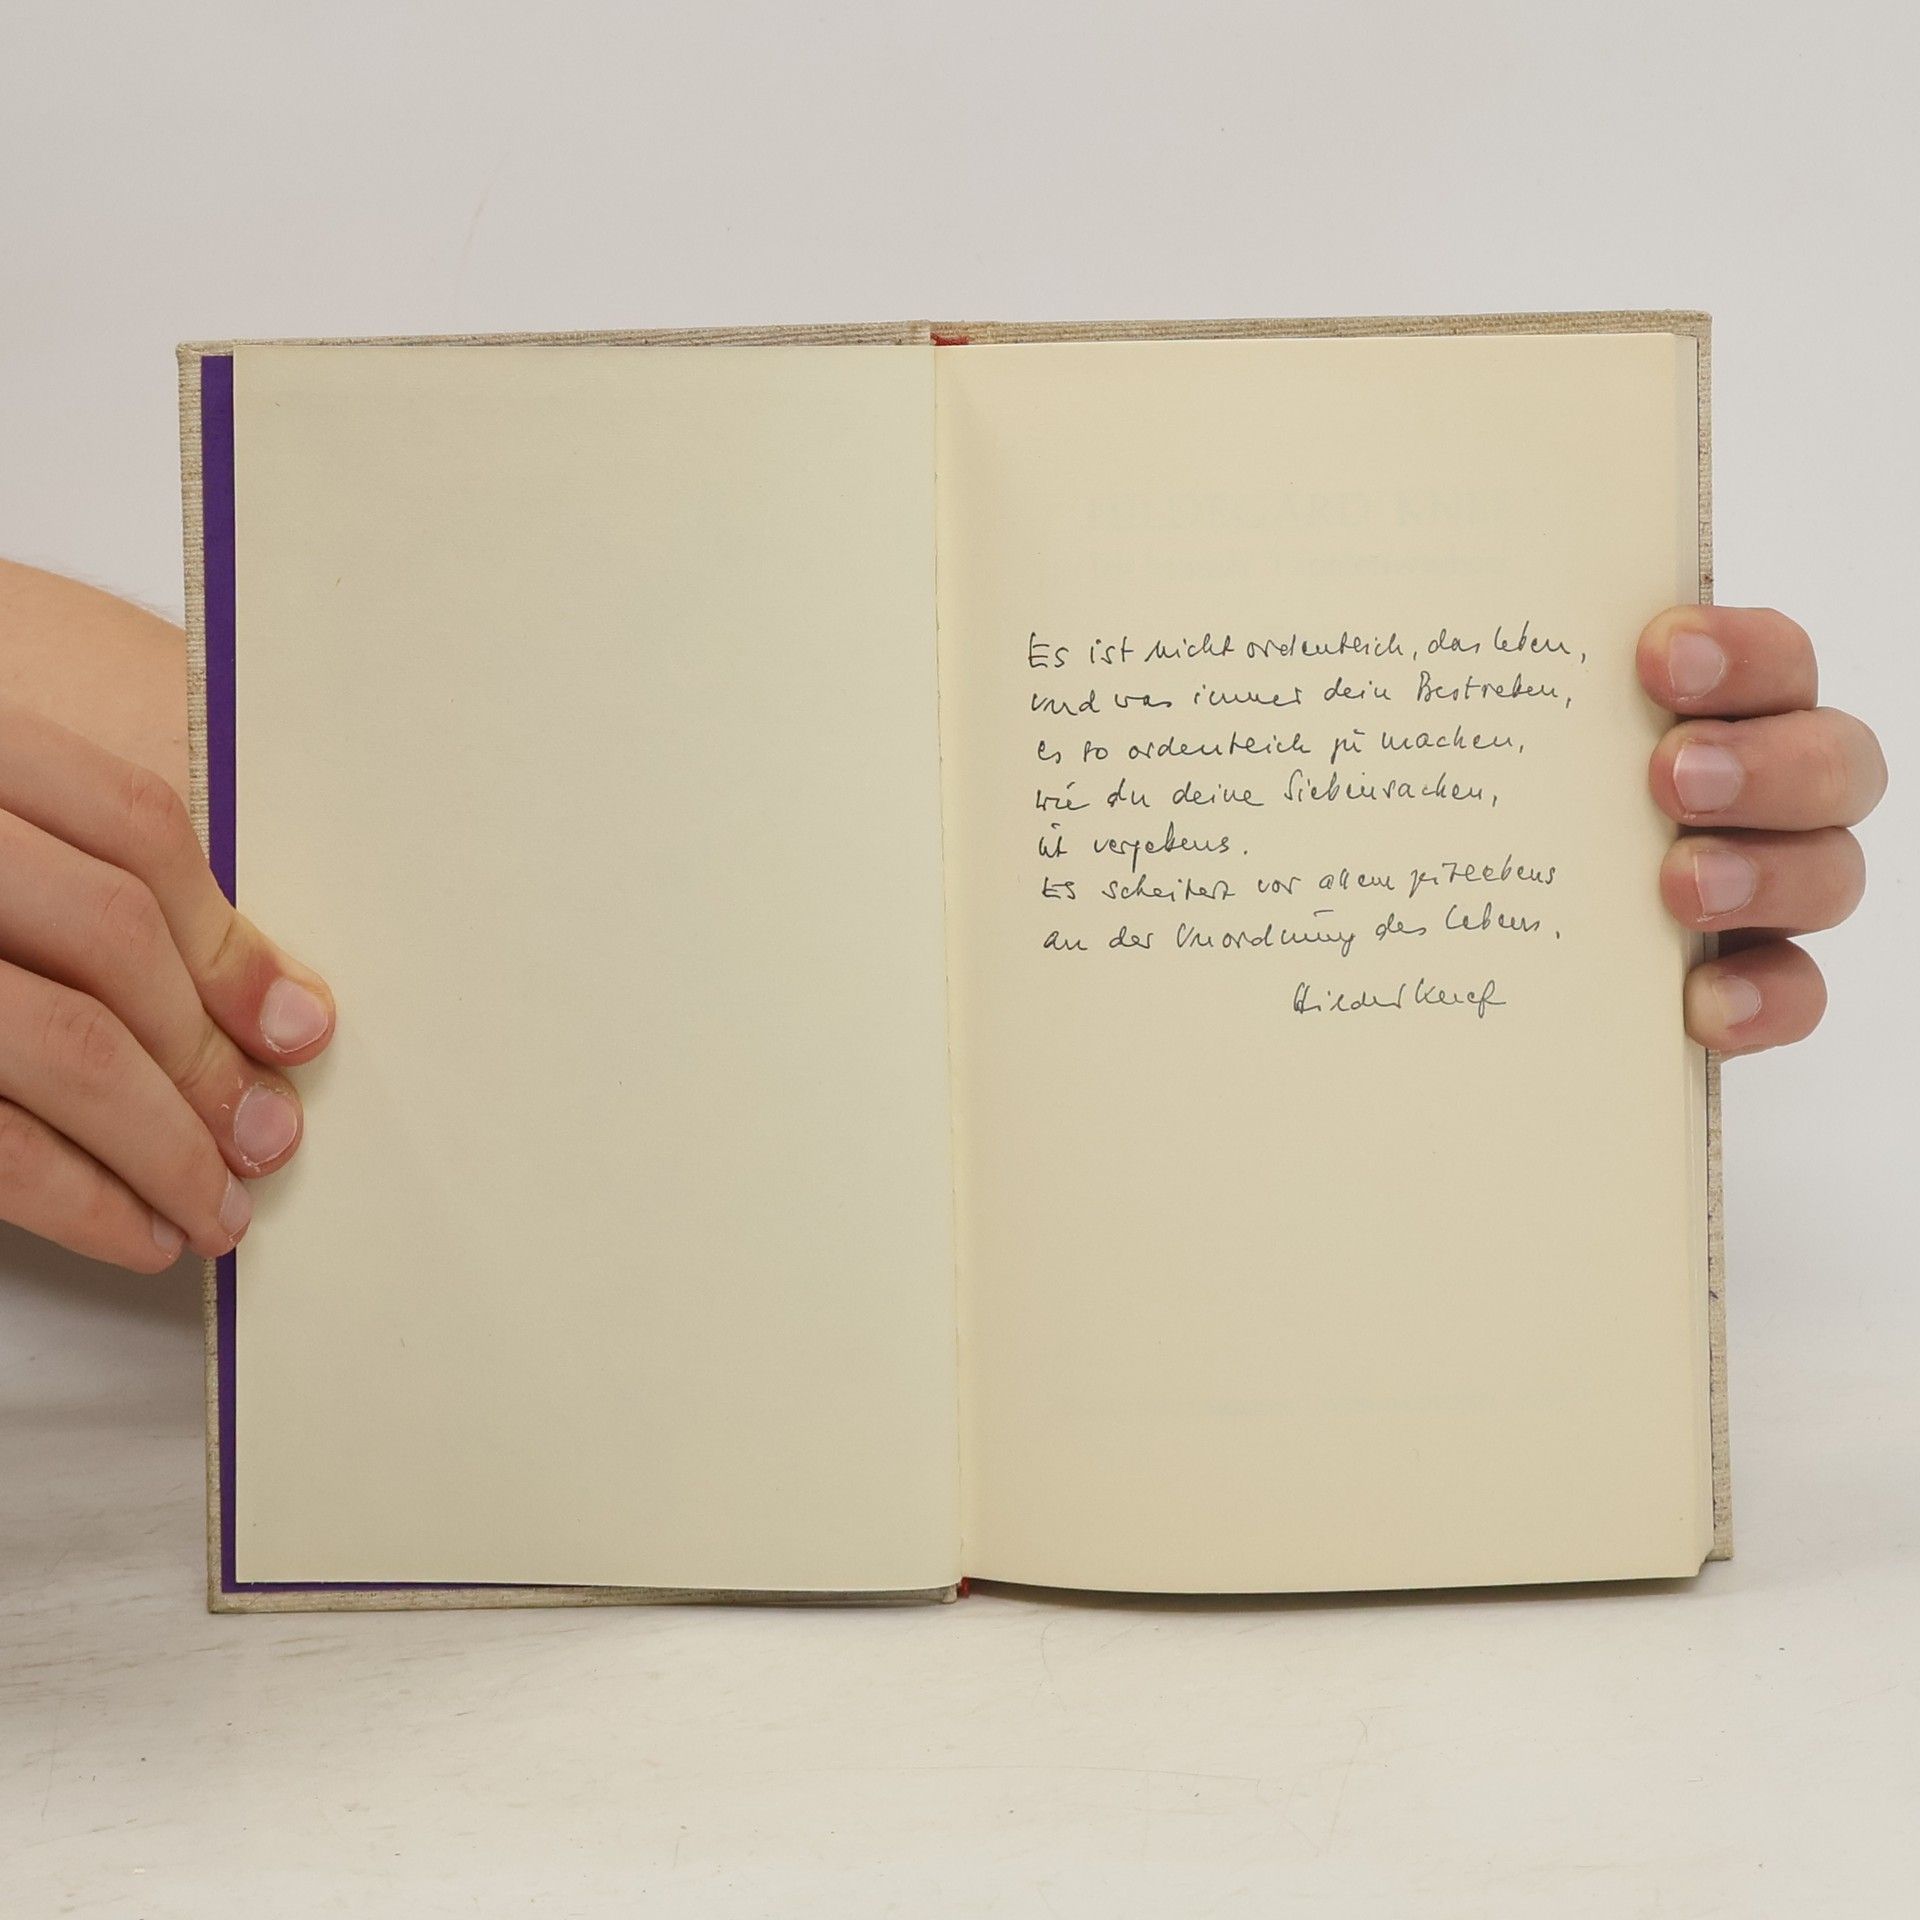 Es ist nicht ordentlich, das Leben,
und was immer dein Bestreben,
es so ordentlich zu machen,
wie du deine Siebensachen,
ist vergebens.
Es scheitert vor allem zeitlebens
an der Unordnung des Lebens.
Hilde Knef